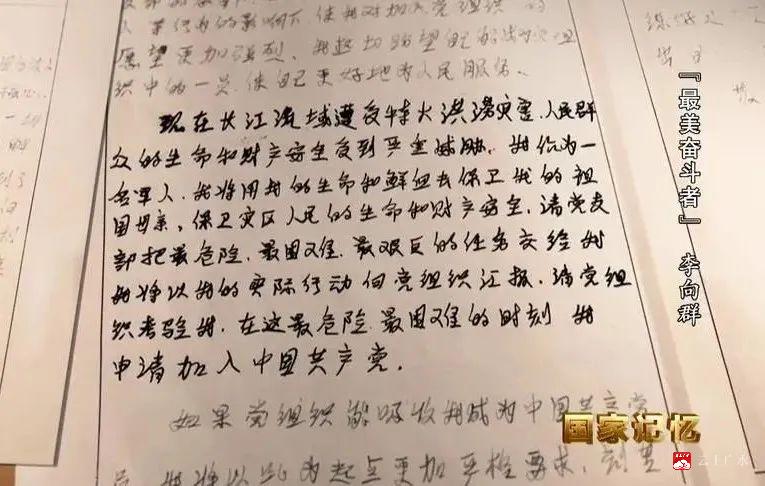 愿望更加强烈。我迫切盼望自己能成为党组
织中的一员,使自己更好地为人民服务。
现在长江流域遭受特大洪涝灾害,人民群
众的生命和财产安全受到严重威胁。我作为一
名军人,我将用我的生命和鲜血去保卫我的祖
国母亲,保卫灾区人民的生命和财产安全,请党支
部把最危险、最困难、最艰巨的任务交给我
我将以我的实际行动向党组织汇报,请党组
织考验我,在这最危险、最困难的时刻 我
申请加入中国共产党。
如果党组织能吸收我成为中国共产党
员 我将以此为起点更加严格要求,
『最美奋斗者』 李向群
国家记忆
云上广水